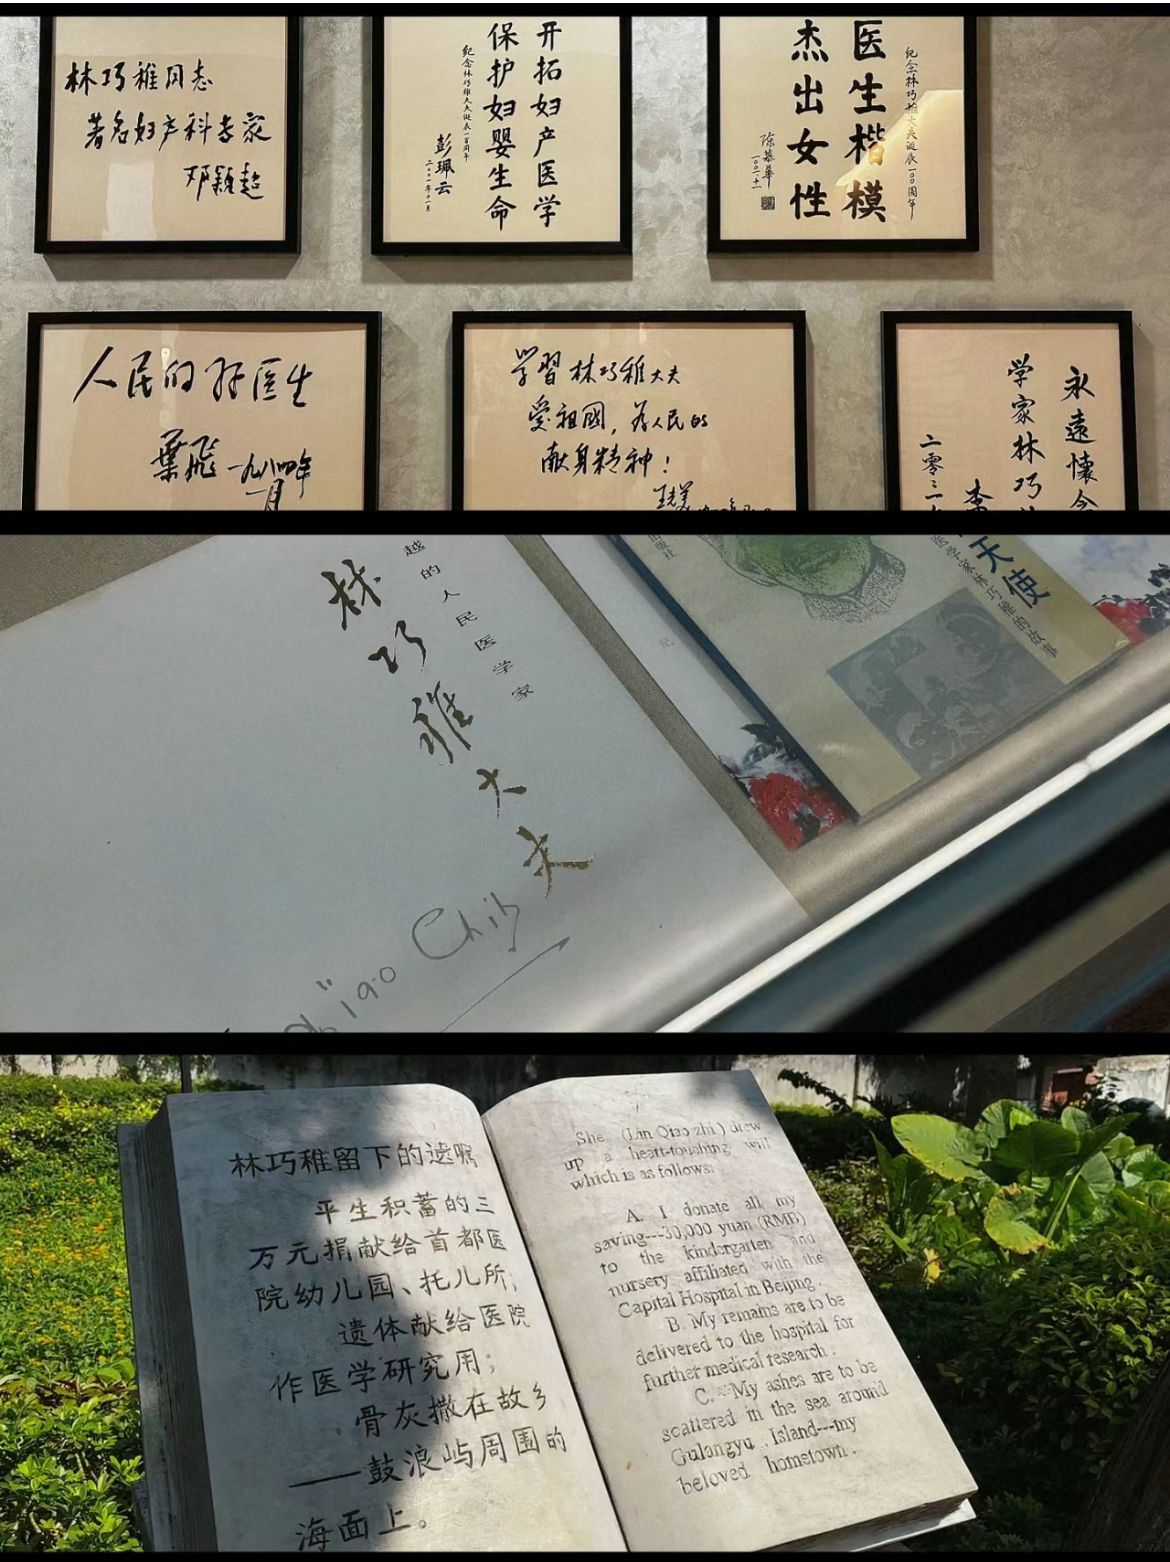 林巧稚同志
著名妇产科专家
邓颖超
开拓妇产医学
保护妇婴生命
纪念林巧稚大夫诞辰一百周年
彭珮云
二〇〇一年十一月
纪念林巧稚大夫诞辰一〇〇周年
医生楷模
杰出女性
陈慕华
人民的好医生
葉飛 一九八四年
月
学習林巧稚大夫
爱祖國，为人民的
献身精神！
永遠懷念
学家林巧
李
越的人民医学家
林巧稚大夫
Chih
天使
医学家林巧稚的故事
出版社
林巧稚留下的遗嘱
平生积蓄的三
万元捐献给首都医
院幼儿园、托儿所；
遗体献给医院
作医学研究用；
骨灰撒在故乡
——鼓浪屿周围的
海面上。
She (Lin Qiao zhi) drew
up a heart-touching will
which is as follows:
A. I donate all my
saving---30,000 yuan (RMB)
to the kindergarten and
nursery affiliated with the
Capital Hospital in Beijing.
B. My remains are to be
delivered to the hospital for
further medical research.
C. My ashes are to be
scattered in the sea around
Gulangyu Island---my
beloved hometown.